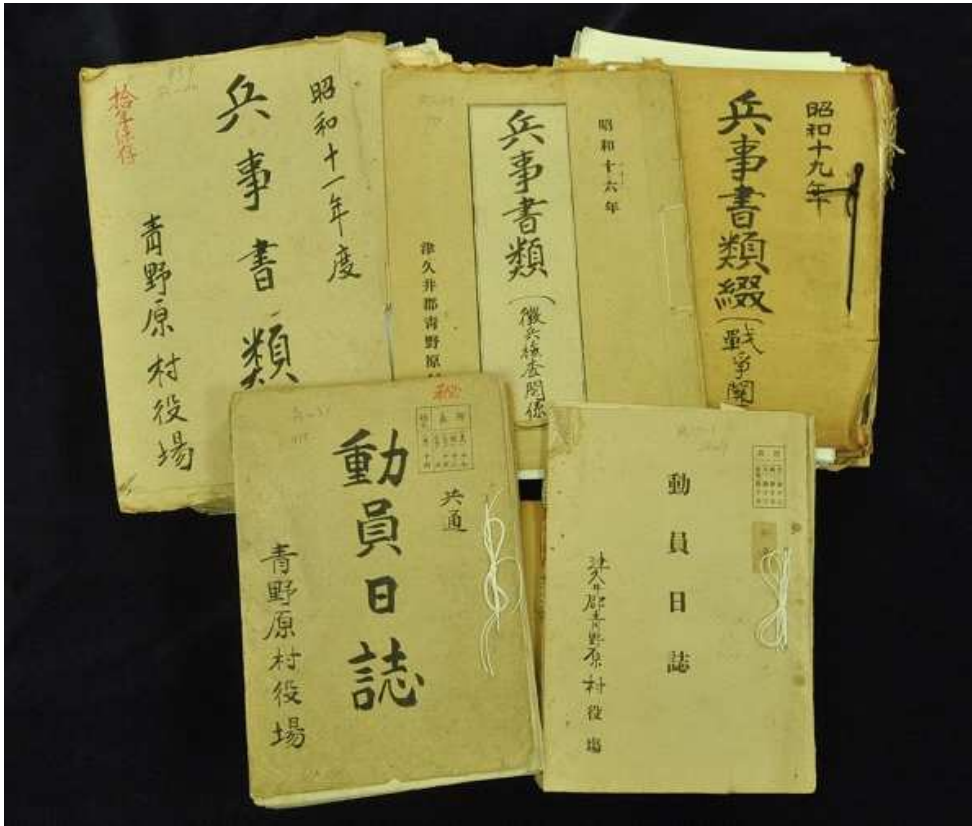 昭和十一年度
兵事書類
青野原村役場
拾年保存
昭和十六年
兵事書類(徴兵検査関係
津久井郡青野原
昭和十九年
兵事書類綴(戦争関
秘
共通
動員日誌
青野原村役場
動員日誌
津久井郡青野原村役場